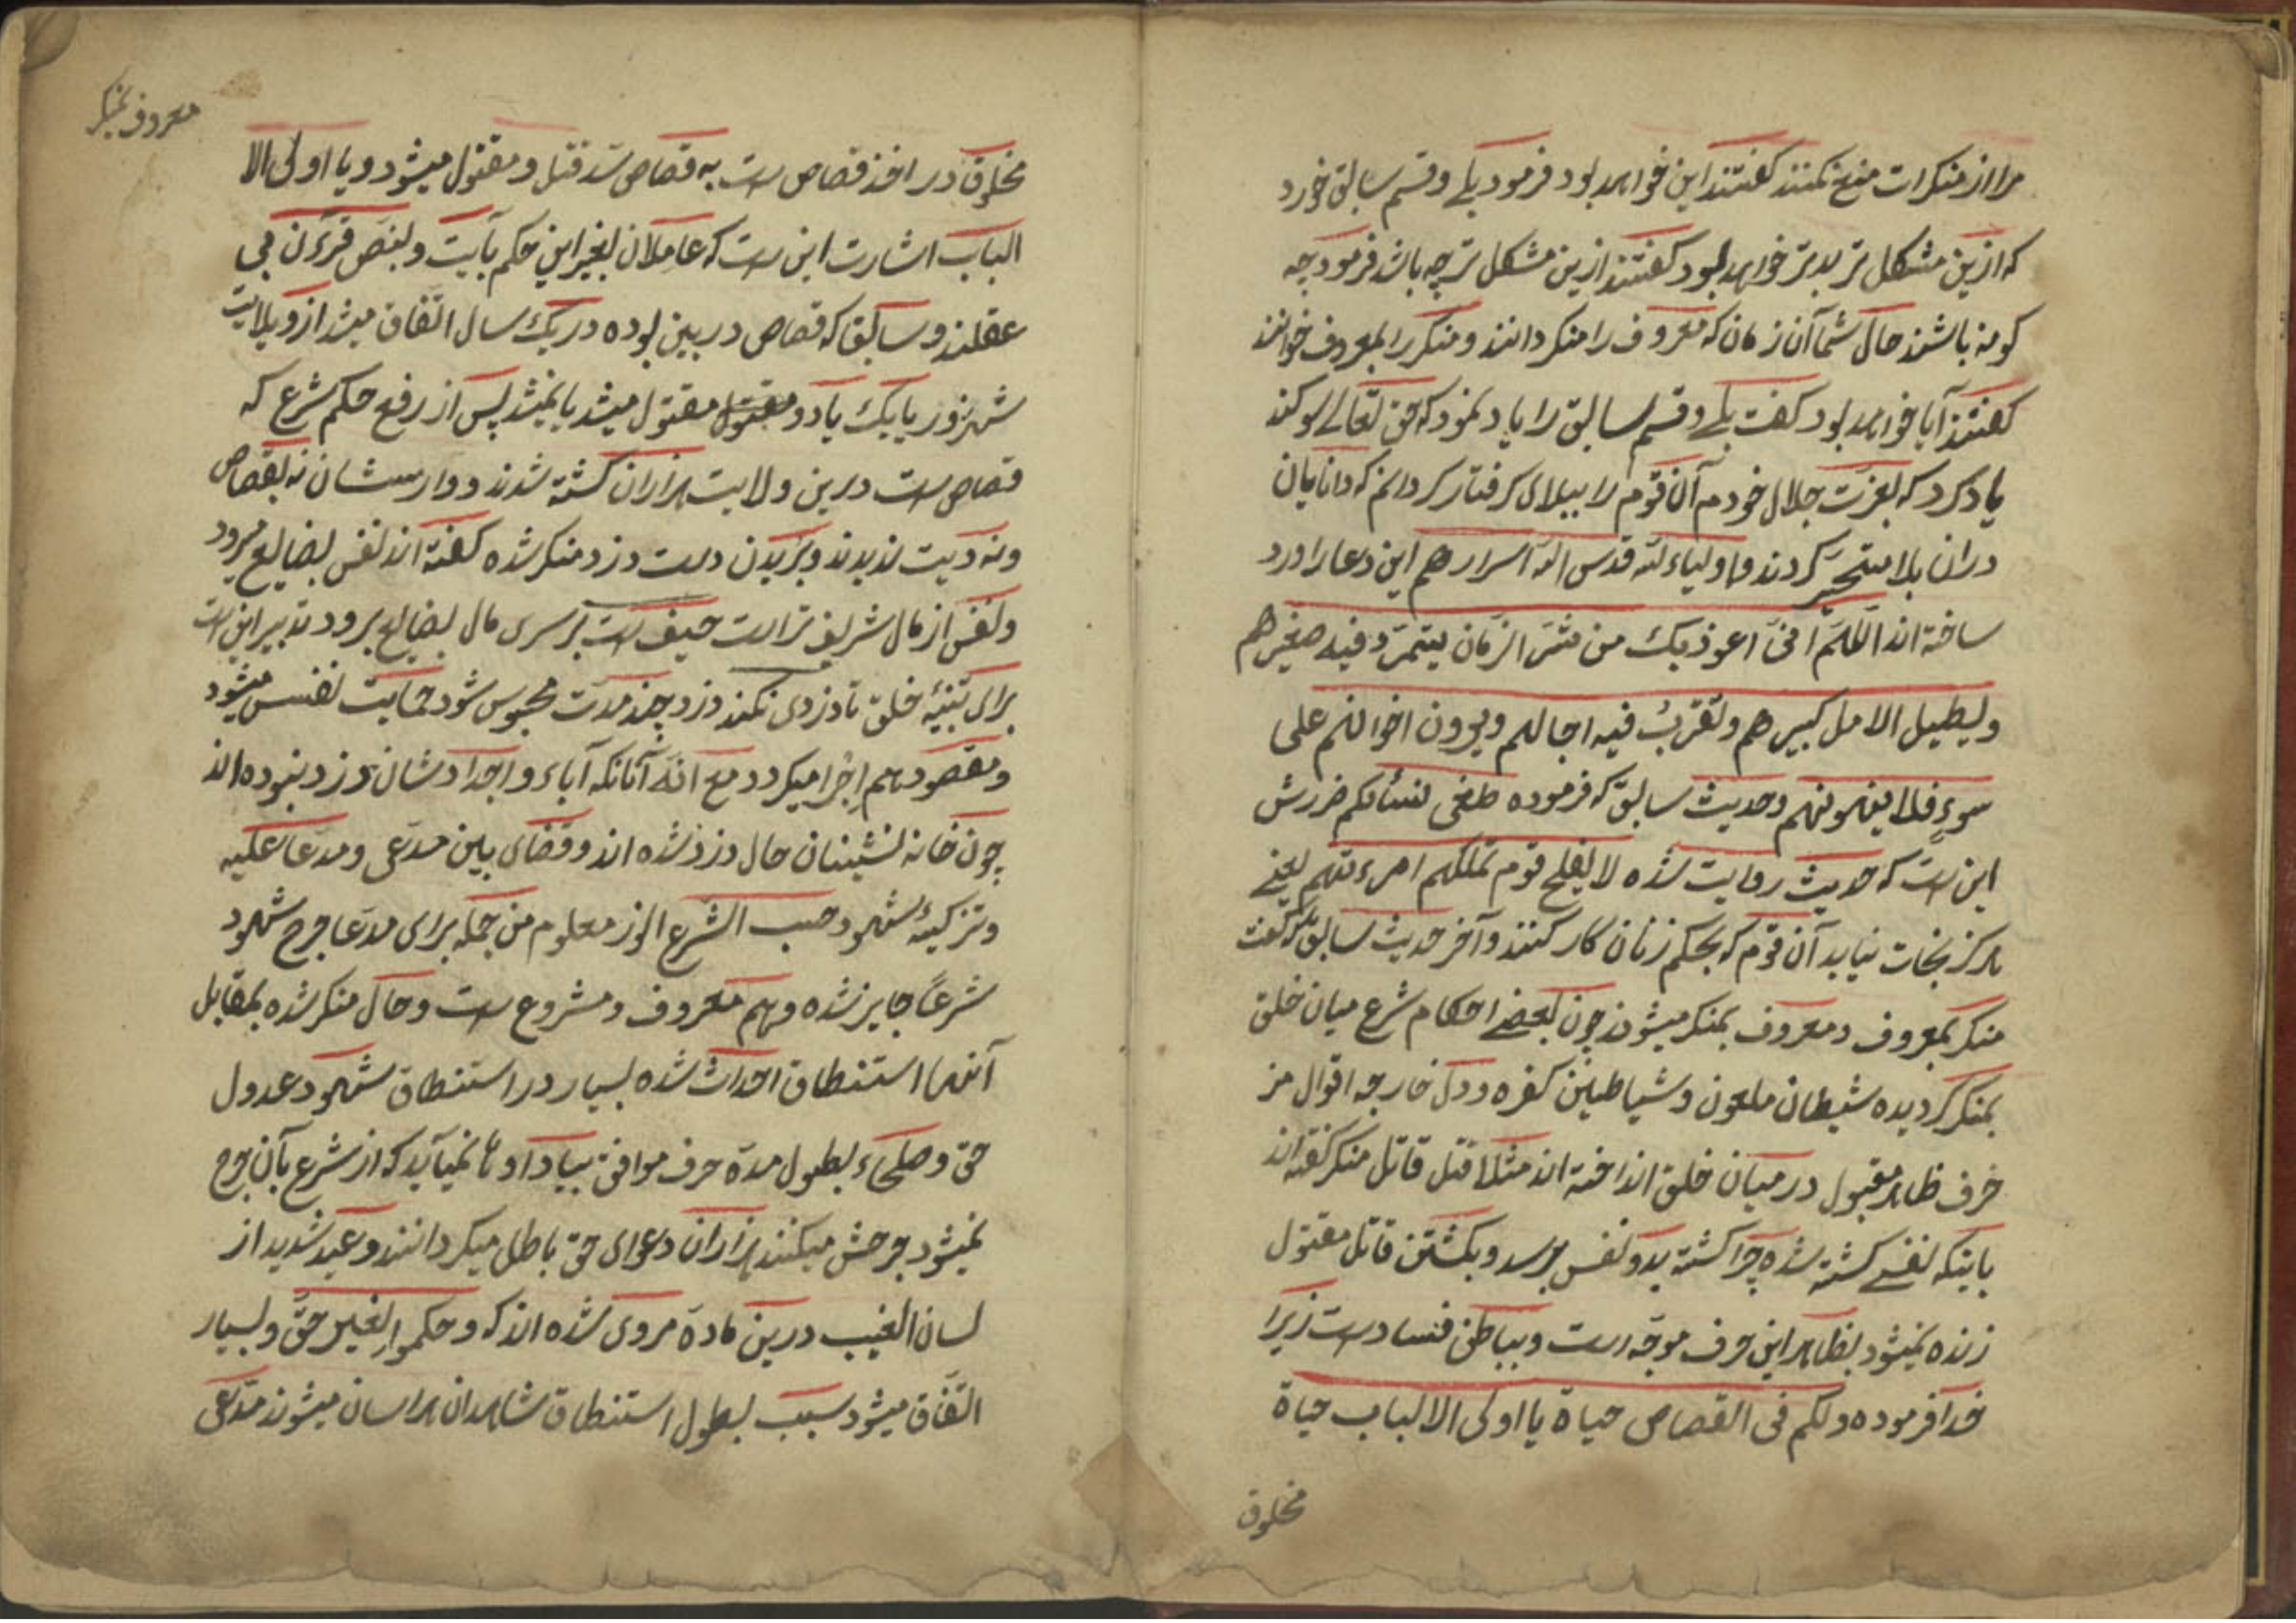 مرا از منکرات منع نکنند کفتند این خواهد بود فرمود بلی و قسم سابق خورد
که ازین مشکل تر بدتر خواهد بود کفتند ازین مشکل تر چه باشد فرمود چه
کونه باشند حال شما آن زمان که معروف را منکر دانند و منکر را بمعروف خوانند
کفتند آیا خواهد بود کفت بلی و قسم سابق را یاد نمود که حق تعالی سوکند
یاد کرد که بعزت جلال خودم آن قوم را ببلای کرفتار کردانم که دانایان
دران بلا متحیّر کردند و اولیاء لله قدس الله اسرارهم این دعا را ورد
ساخته اند اللهم انی اعوذ بک من شر الزمان یتمرّد فیه صغیرهم
و یطیل الامل کبیرهم و تقرّب فیه اجالهم و یرون اخوانهم علی
سوءٍ فلا ینهونهم و حدیث سابق که فرموده طغی نسائکم ضررش
این ست که حدیث روایت شده لا یفلح قوم تملکهم امرءتهم یعنی
هرکز نجات نیابد آن قوم که بحکم زنان کار کنند و آخر حدیث سابق که کفت
منکر بمعروف و معروف بمنکر میشوند چون بعضی احکام شرع میان خلق
بمنکر کردیده شیطان ملعون و شیاطین کفره و دول خارجه اقوال مز
خرف ظاهر مقبول در میان خلق انداخته اند مثلا قتل قاتل منکر کفته اند
باینکه نفسی کشته شده چرا کشته بدو نفس برسد و بکشتن قاتل مقتول
زنده نمیشود بظاهر این حرف موجّه است و بباطن فسادست زیرا
خدا فرموده ولکم فی القصاص حیاة یا اولی الالباب حیاة
مخلوق
معروف بمنکر
مخلوق در اخذ قصاص ست به قصاص سد قتل و مقتول میشود و یا اولی الا
الباب اشارت این ست که عاملان بغیر این حکم بآیت و بنص قرءن بی
عقلند و سابقا که قصاص در بین بوده در یک سال اتّفاق میشد از ویلایت
شهرزور یا یک یا دو مقتول مقتول میشد یا نمیشد پس از رفع حکم شرع که
قصاص ست درین ولایت هزاران کشته شدند و وارسشان نه بقصاص
و نه دیت ندیدند و بریدن دست دزد منکر شده کفته اند نفس بضایع میرود
و نفس از مال شریف تر است حیف ست بر سری مال بضایع برود تدبیر این ست
برای تنبیٔه خلق تا دزدی نکنند دزد چند مدّت محبوس شود حمایت نفس میشود
و مقصود هم اجرا میکردد مع انّه آنانکه آباء و اجدادشان دزد نبوده اند
چون خانه نشینان حال دزد شده اند و قضای بین مدّعی و مدّعا علیه
و تزکیهٔ شهود حسب الشرع الوز معلوم من جمله برای مدّعا جرح شهود
شرعاً جایز شده و هم معروف و مشروع ست و حال منکر شده بمقابل
آنها استنطاق احداث شده بسیار در استنطاق شهود عدول
حق و صلحاء بطول مدّة حرف موافق بیاد او تا نمیآید که از شرع بآن جرح
نمیشود جرحش میکنند هزاران دعوای حق باطل میکردانند وعید شدید از
لسان الغیب درین مادّة مروی شده اند که و حکموا بغیر حقّ و بسیار
اتّفاق میشود سبب بطول استنطاق شاهدان هراسان میشوند مدّعی